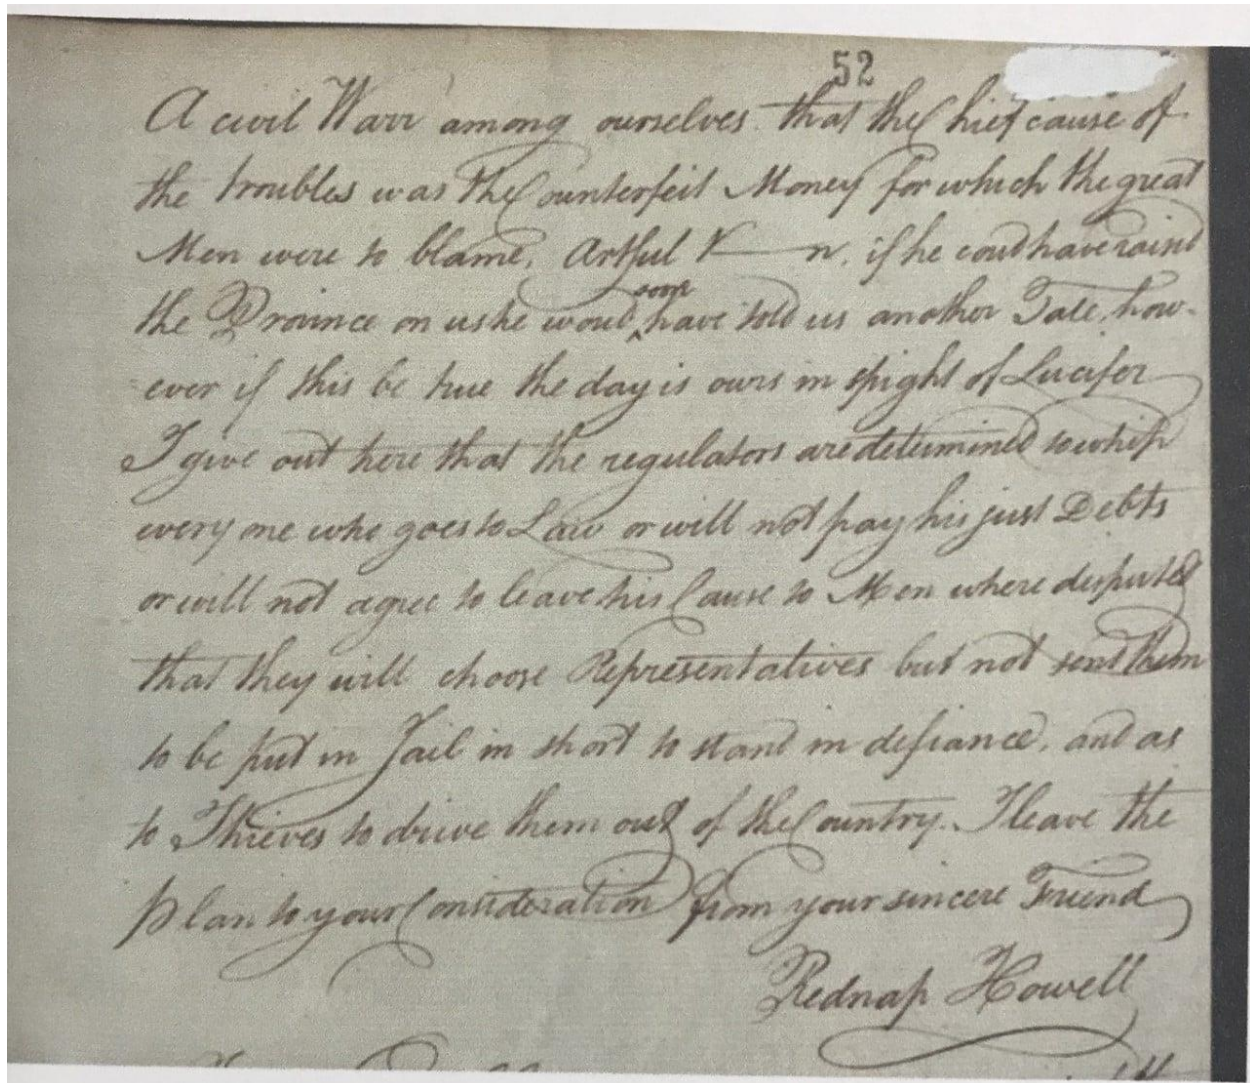 52
A civil Warr among ourselves that the Chief cause of
the troubles was the Counterfeit Money for which the great
Men were to blame. Artful V——n, if he coud have raisd
the Province on us he woud have told us another Tale, how-
soon
ever if this be true the day is ours in spight of Lucifer
I give out here that the regulators are determined to whip
every one who goes to Law or will not pay his just Debts
or will not agree to leave his Cause to Men where disputed
that they will choose Representatives but not send them
to be put in Jail in short to stand in defiance, and as
to Thieves to drive them out of the Country. I leave the
plan to your Consideration from your sincere Friend
Rednap Howell